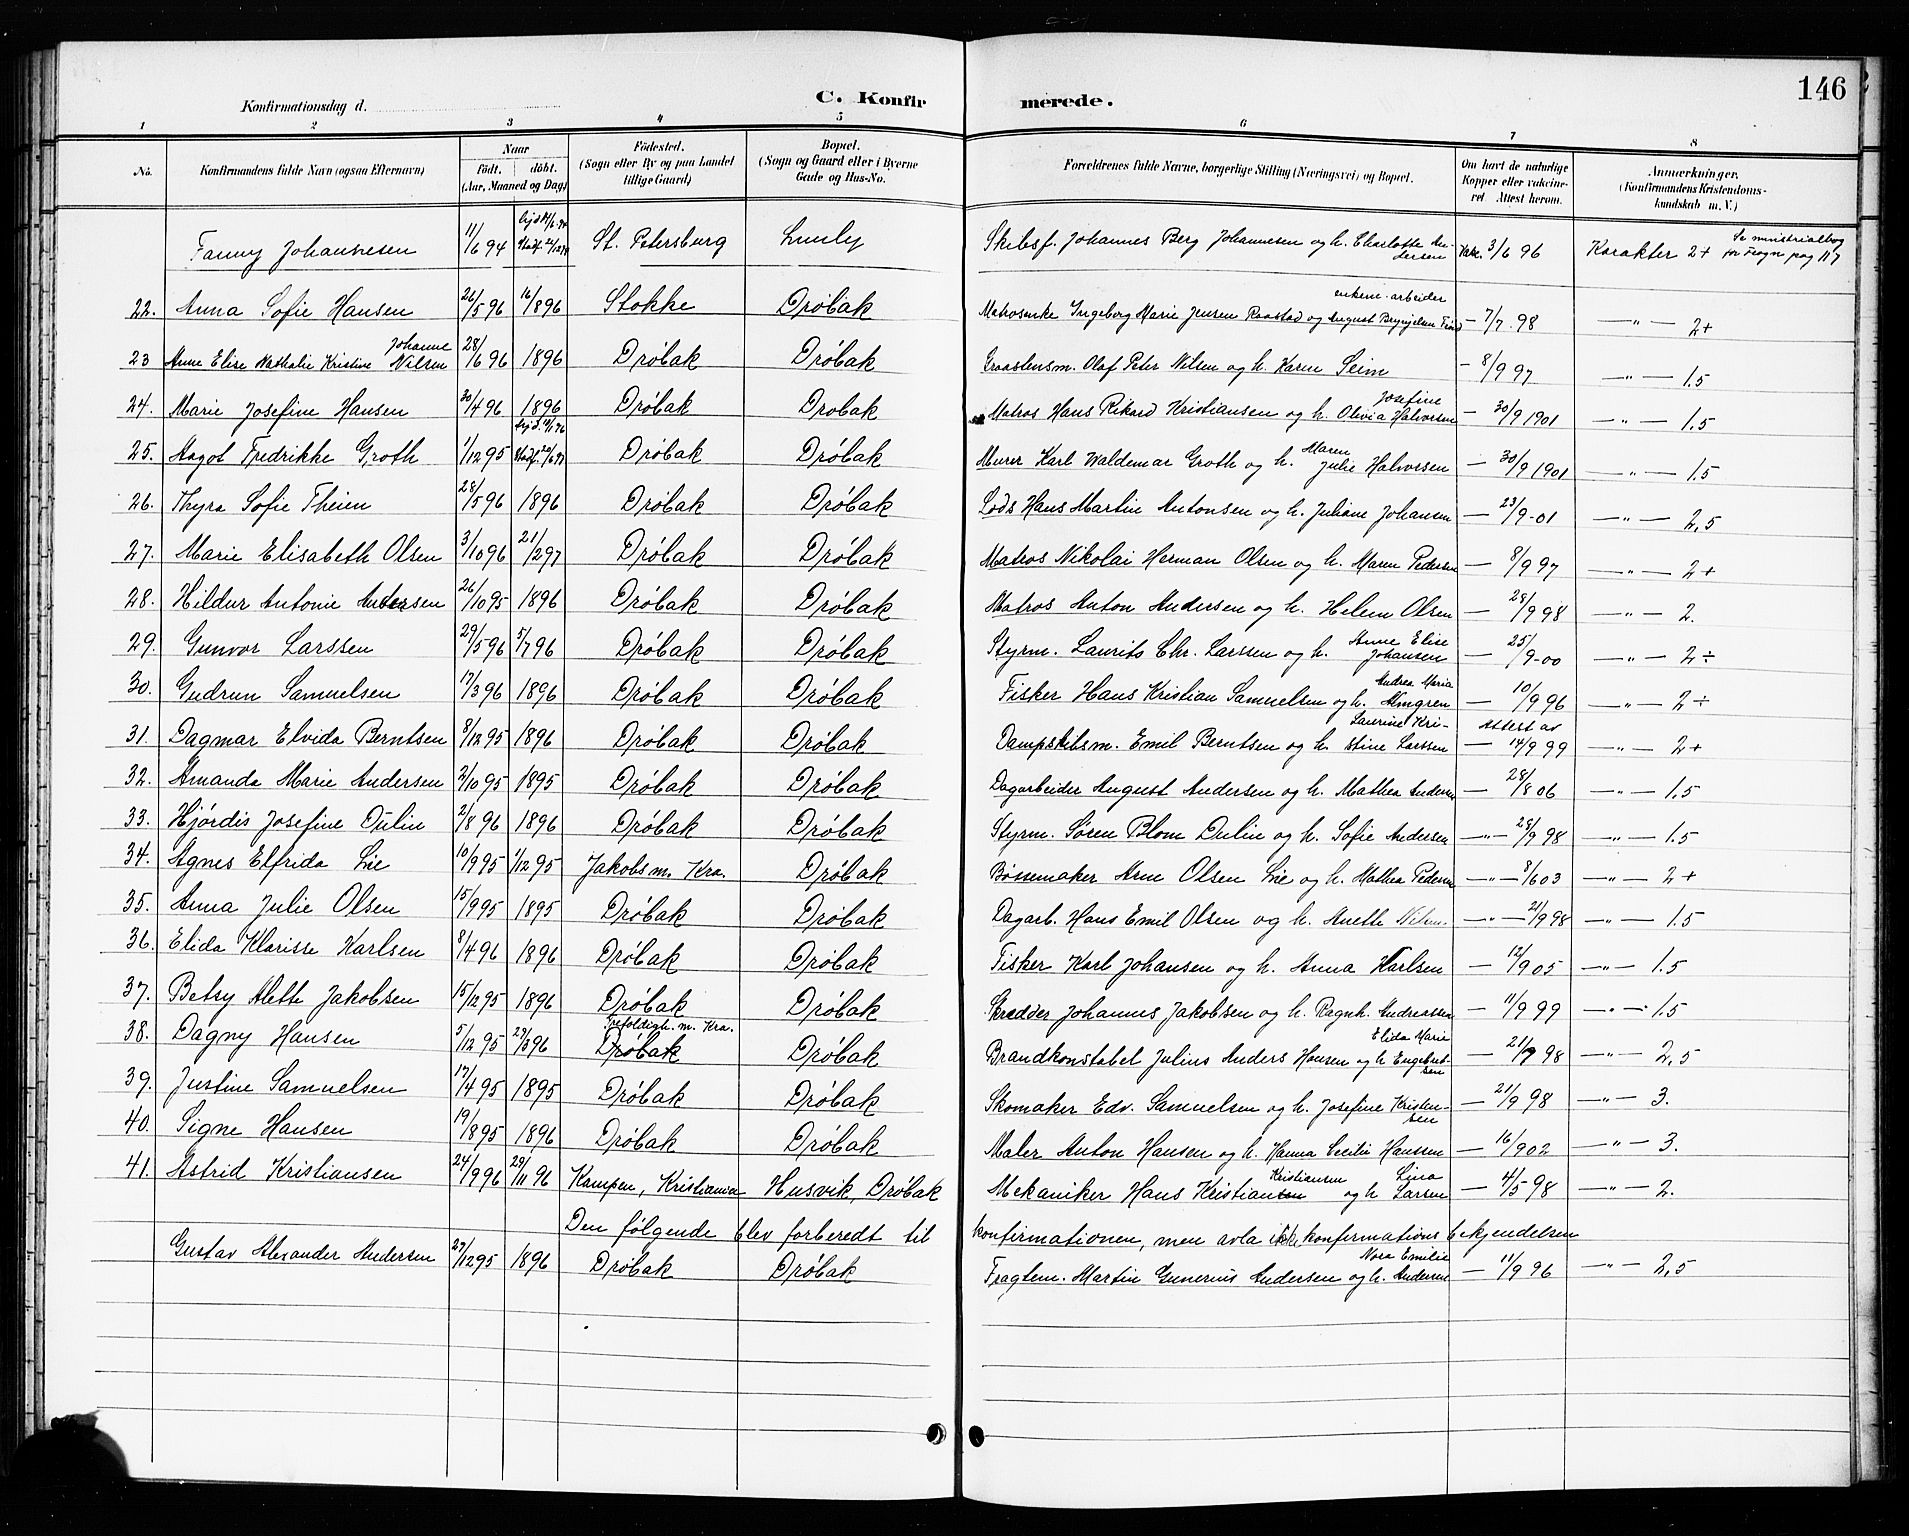 146
Konfirmationsdag d.
C. Konfirmerede.
1 2 3 4 5 6 7 8
No. Konfirmandens fulde Navn (ogsaa Efternavn) Naar födt. döbt. (Aar, Maaned og Dag) Födested. (Sogn eller By og paa Landet tillige Gaard) Bopæl. (Sogn og Gaard eller i Byerne Gade og Hus-No. Forældrenes fulde Navne, borgerlige Stilling (Næringsvei) og Bopæl. Om havt de naturlige Kopper eller vakcineret Attest herom. Anmærkninger. (Konfirmandens Kristendomskundskab m. V.)
Fanny Johannesen 11/6 94 St. Petersburg Skibsf. Johannes Berg Johannesen og h. Charlotte Andersen Vakc. 3/6 96 Karakter 2+ Se ministrialbog for Frogn pag 117
22. Anna Sofie Hansen 26/5 96 16/8 96 Stokke Dröbak Matrosenke Ingeborg Marie Jensen Raastad og August Brynjelsen — 7/7 98 —"— 2+
23 Anne Elise Nathalie Kristine Johanne Nilsen 28/6 96 1896 Dröbak Dröbak Graastensm. Olaf Peter Nilsen og h. Karen Seim — 8/9 97 —"— 1.5
24. Marie Josefine Hansen 30/4 96 1896 Dröbak Dröbak Matros Hans Rikard Kristiansen og h. Olivia Josefine Halvorsen — 30/9 1901 —"— 1.5
25. Aagot Fredrikke Groth 1/12 95 Dröbak Dröbak Murer Karl Waldemar Groth og h. Maren Julie Halvorsen — 30/9 1901 —"— 1.5
26. Thyra Sofie Theien 28/5 96 1896 Dröbak Dröbak Lods Hans Martin Antonsen og h. Juliane Johansen — 23/9-01 —"— 2,5
27. Marie Elisabeth Olsen 3/10 96 21/2 97 Dröbak Dröbak Matros Nikolai Herman Olsen og h. Maren Pedersen — 8/9 97 —"— 2+
28. Hildur Antonie Andersen 26/10 95 1896 Dröbak Dröbak Matros Anton Andersen og h. Helene Olsen — 28/9 98 —"— 2.
29. Gunvor Larssen 29/5 96 5/7 96 Dröbak Dröbak Styrm. Laurits Chr. Larssen og h. Anne Elise Johansen — 25/9-00 —"— 2÷
30. Gudrun Samuelsen 17/3 96 1896 Dröbak Dröbak Fisker Hans Kristian Samuelsen og h. Andrea Maria Almgren — 10/9 96 —"— 2÷
31. Dagmar Elvida Berntsen 8/12 95 1896 Dröbak Dröbak Dampskibsm. Emil Berntsen og h. Laurine Kristine Larssen Attest av — 14/9 99 —"— 2+
32. Amanda Marie Andersen 2/10 95 1895 Dröbak Dröbak Dagarbeider August Andersen og h. Mathea Andersen — 28/8 06 —"— 1.5
33. Hjördis Josefine Dulin 2/8 96 1896 Dröbak Dröbak Styrm. Søren Blom Dulin og h. Sofie Andersen —"— 28/9 98 —"— 1.5
34. Agnes Elfrida Lie 10/9 95 1/12 95 Jakobs m. Kra. Dröbak Bøssemaker Arne Olsen Lie og h. Mathea Pedersen —"— 8/6 03 —"— 2+
35. Anna Julie Olsen 15/9 95 1895 Dröbak Dröbak Dagarb. Hans Emil Olsen og h. Anette —"— 21/9 98 —"— 1.5
36. Elida Klarisse Karlsen 8/4 96 1896 Dröbak Dröbak Fisker Karl Johansen og h. Anna Karlsen — 12/9 05 —"— 1.5
37. Betsy Alette Jakobsen 15/12 95 1896 Dröbak Dröbak Skrædder Johannes Jakobsen og h. Ragnh. Andreassen — 11/9 99 —"— 1.5
38. Dagny Hansen 5/12 95 29/3 96 Trefoldigh. m. Kra. Dröbak Dröbak Brandkonstabel Julius Anders Hansen og h. Elida Marie Engebretsen — 21/9 98 —"— 2,5
39. Justine Samuelsen 17/4 95 1895 Dröbak Dröbak Skomaker Edv. Samuelsen og h. Josefine Kristensen — 21/9 98 —"— 3.
40. Signe Hansen 19/8 95 1896 Dröbak Dröbak Maler Anton Hansen og h. Hanna Cecilie Hanssen — 16/9 02 —"— 3.
41. Astrid Kristiansen 24/9 96 29/11 96 Kampen, Kristiania Husvik, Dröbak Mekaniker Hans Kristiansen Kristiansen og h Lina Larsen — 4/5 98 —"— 2.
Den følgende blev forberedt til konfirmationen, men avla ikke konfirmationsbekjendelsen
Gustav Alexander Andersen 27/12 95 1896 Dröbak Dröbak Fragtem. Martin Gunerius Andersen og h. Nora Emilie Andersen — 11/9 96 —"— 2,5